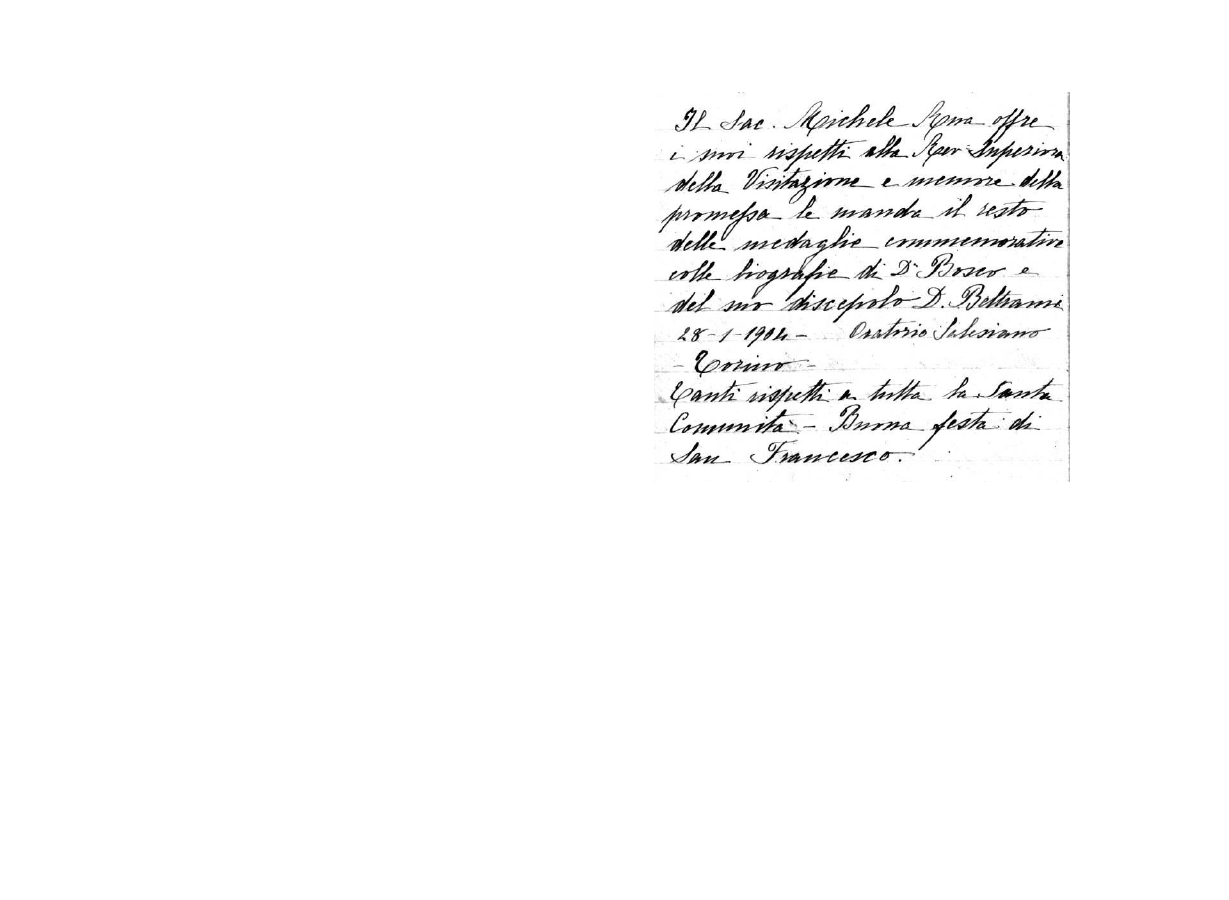 Il Sac. Michele Rua offre
i suoi rispetti alla Rev. Superiora
della Visitazione e memore della
promessa le manda il resto
delle medaglie commemorative
colle biografie di D. Bosco e
del suo discepolo D. Beltrami
28-1-1904 - Oratorio Salesiano
- Torino -
Tanti rispetti a tutta la Santa
Comunità - Buona festa di
San Francesco.